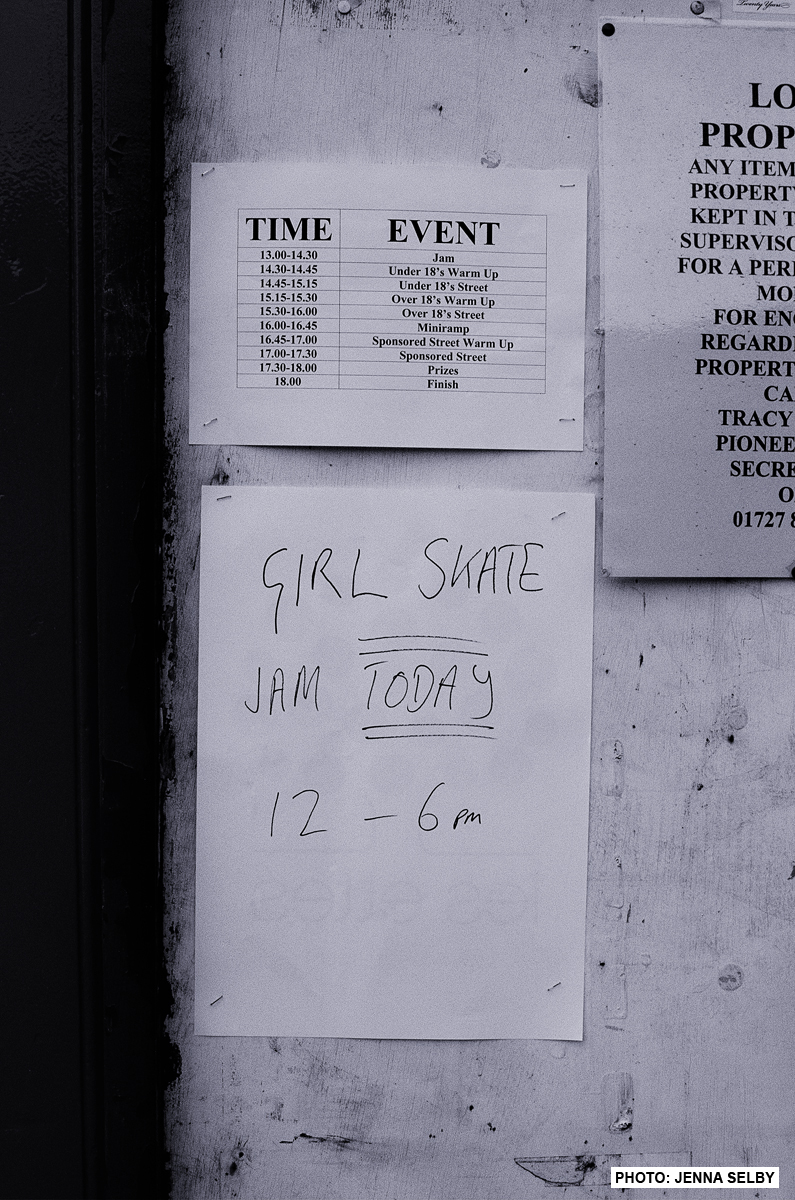 Twenty Years
TIME EVENT
13.00-14.30 Jam
14.30-14.45 Under 18's Warm Up
14.45-15.15 Under 18's Street
15.15-15.30 Over 18's Warm Up
15.30-16.00 Over 18's Street
16.00-16.45 Miniramp
16.45-17.00 Sponsored Street Warm Up
17.00-17.30 Sponsored Street
17.30-18.00 Prizes
18.00 Finish
GIRL SKATE
JAM TODAY
12 - 6pm
LO
PROP
ANY ITEM
PROPERTY
KEPT IN T
SUPERVISO
FOR A PERI
MO
FOR ENQ
REGARDI
PROPERT
CA
TRACY
PIONEE
SECRE
O
01727 8
PHOTO: JENNA SELBY